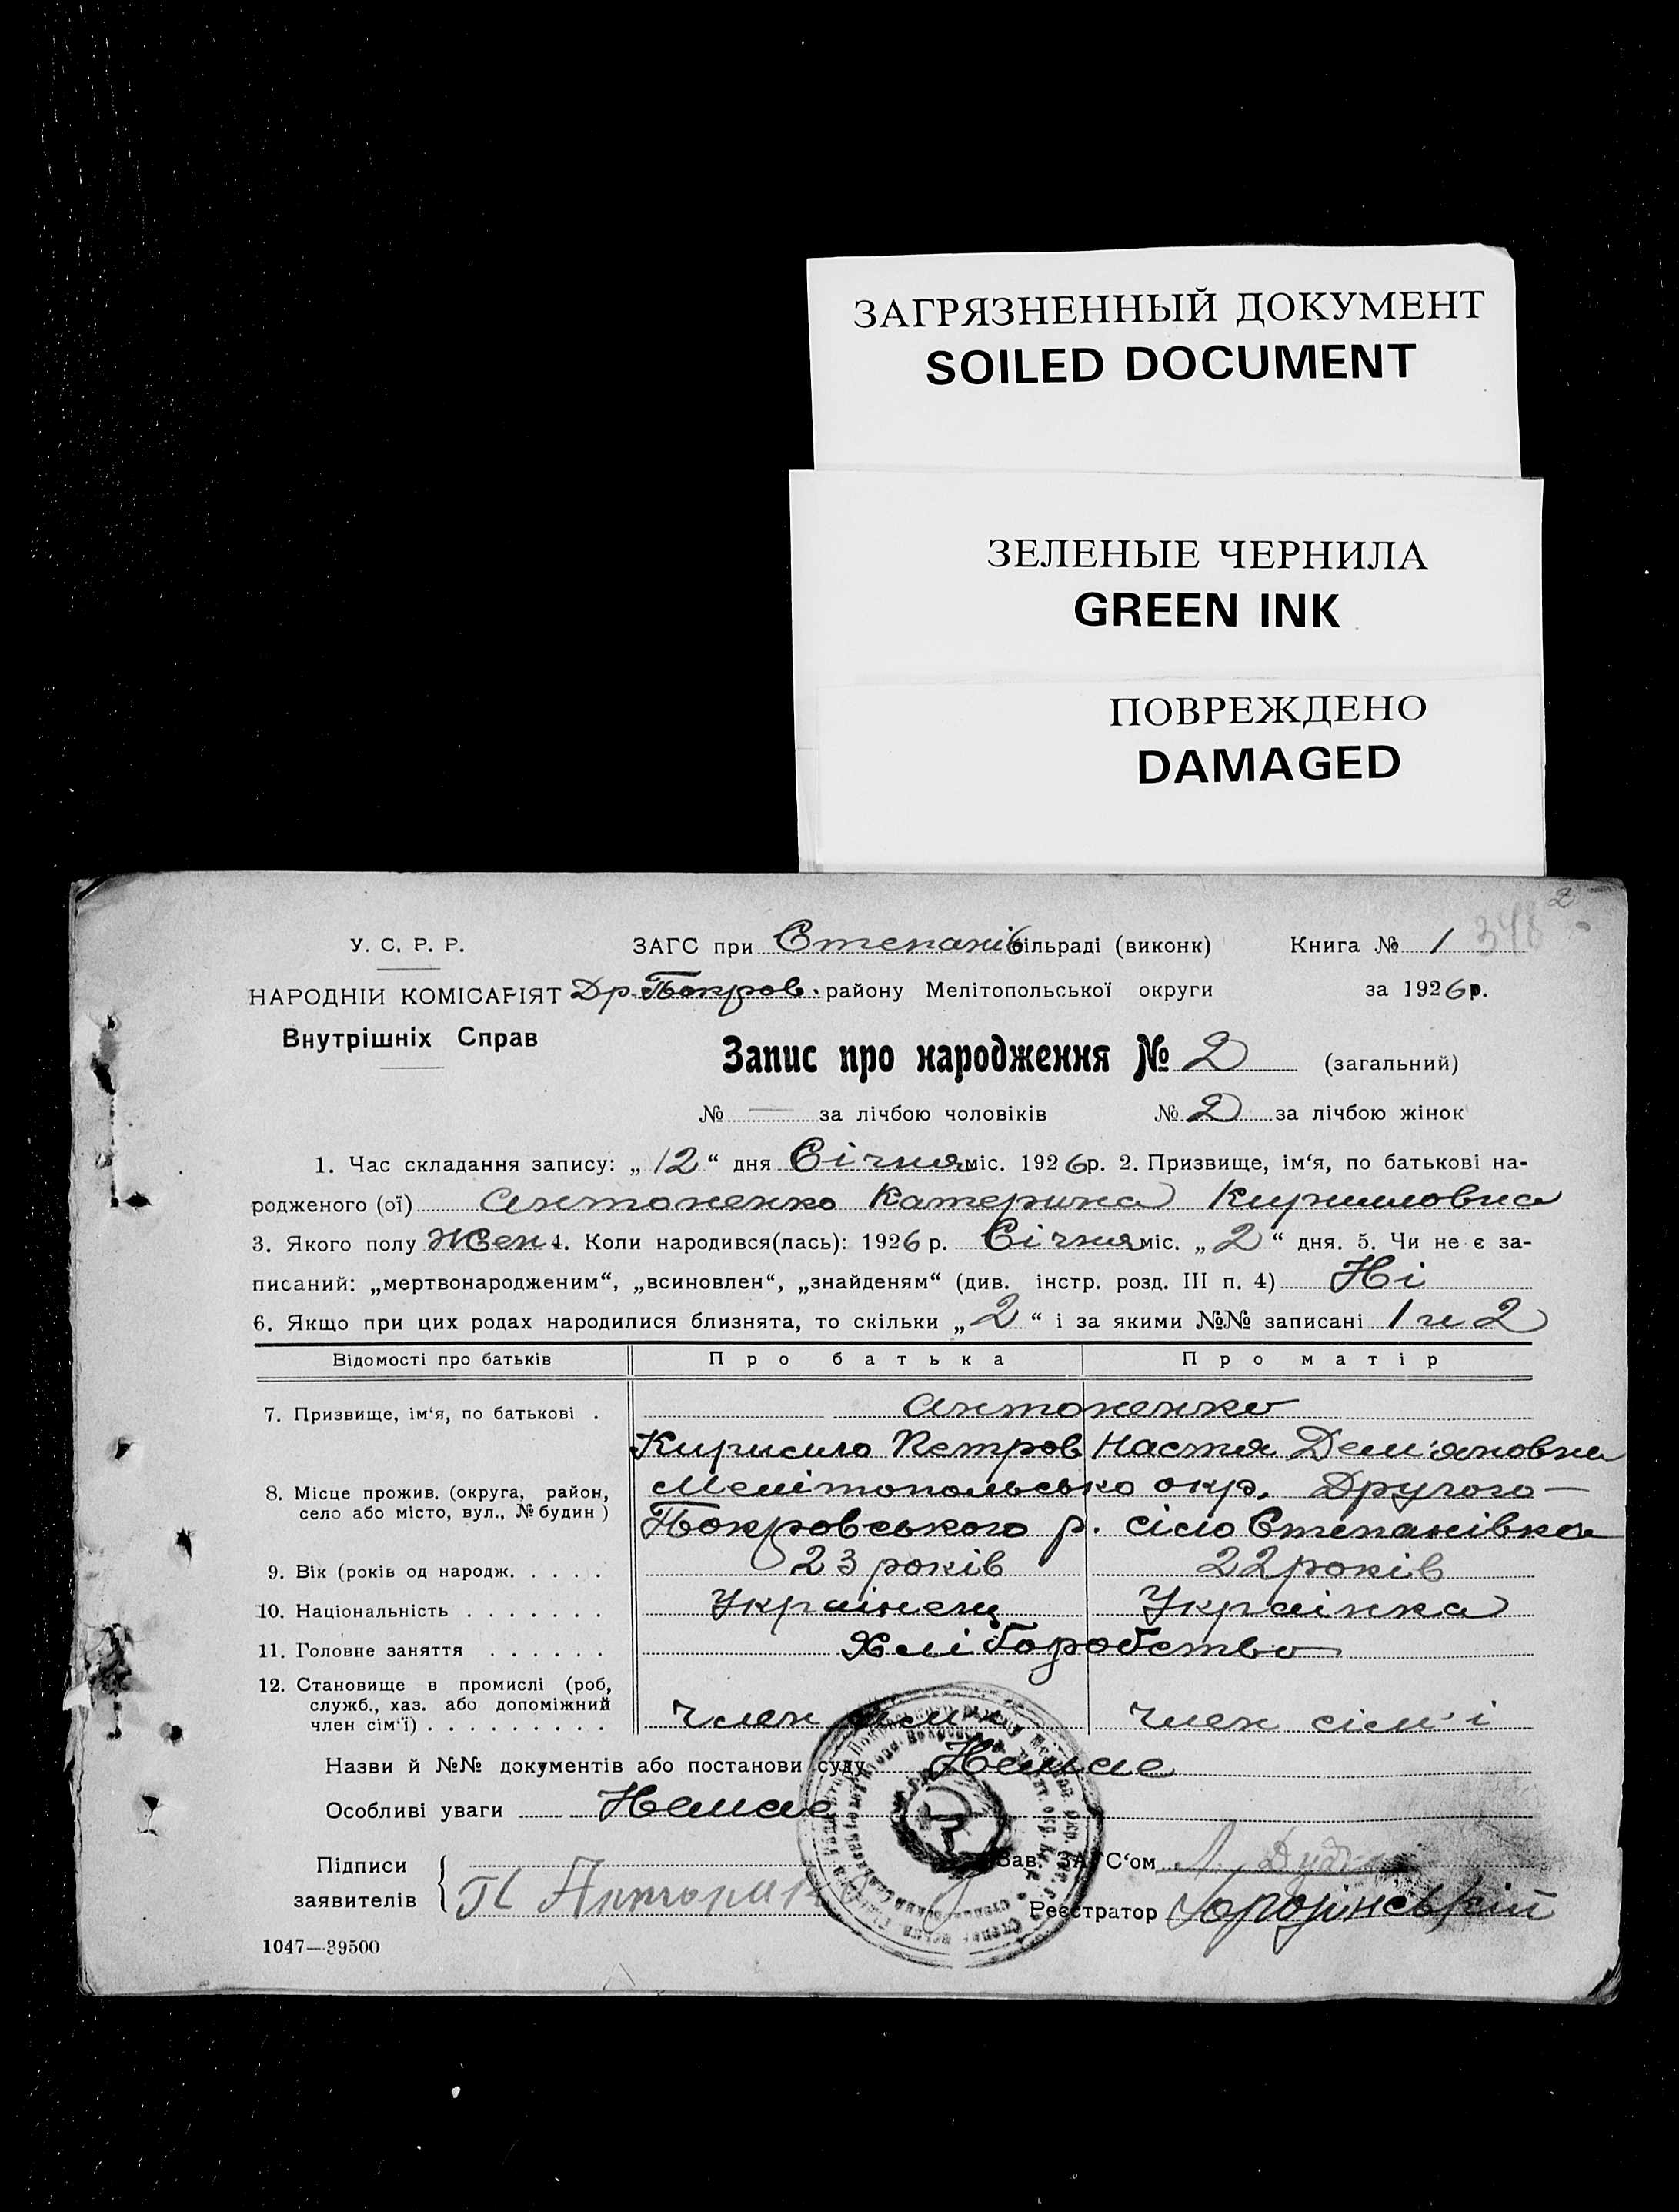 ЗАГРЯЗНЕННЫЙ ДОКУМЕНТ
SOILED DOCUMENT
ЗЕЛЕНЫЕ ЧЕРНИЛА
GREEN INK
ПОВРЕЖДЕНО
DAMAGED
2
348
У. С. Р. Р. ЗАГС при Степанів сільраді (виконк) Книга № 1
НАРОДНІЙ КОМІСАРІЯТ Др. Покров. району Мелітопольської округи за 1926 р.
Внутрішніх Справ
Запис про народження № 2 (загальний)
№ — за лічбою чоловіків № 2 за лічбою жінок
1. Час складання запису: „12“ дня Січня міс. 1926 р. 2. Призвище, ім‘я, по батькові на-
родженого (ої) Антоненко Катерина Кирилловна
3. Якого полу Жен 4. Коли народився(лась): 1926 р. Січня міс. „2“ дня. 5. Чи не є за-
писаний: „мертвонародженим“, „всиновлен“, „знайденям“ (див. інстр. розд. III п. 4) Ні
6. Якщо при цих родах народилися близнята, то скільки „2“ і за якими №№ записані 1 и 2
Відомості про батьків Про батька Про матір
7. Призвище, ім‘я, по батькові . Антоненко
Кирило Петров Настя Дем'яновна
8. Місце прожив. (округа, район, село або місто, вул., № будин) Мелітопольсько окр. Другого —
Покровського р. сіло Степанівка
9. Вік (років од народж. . . . . 23 років 22 років
10. Національність . . . . . . . Українец Українка
11. Головне заняття . . . . . . Хліборобство
12. Становище в промислі (роб, служб., хаз. або допоміжний член сім‘ї) . . . . . . . . . Член Член сім'і
Назви й №№ документів або постанови суду Немае
Особливі уваги Немае
Підписи заявителів П Антоненко
Зав. ЗАГС‘ом
Реєстратор
1047—39500